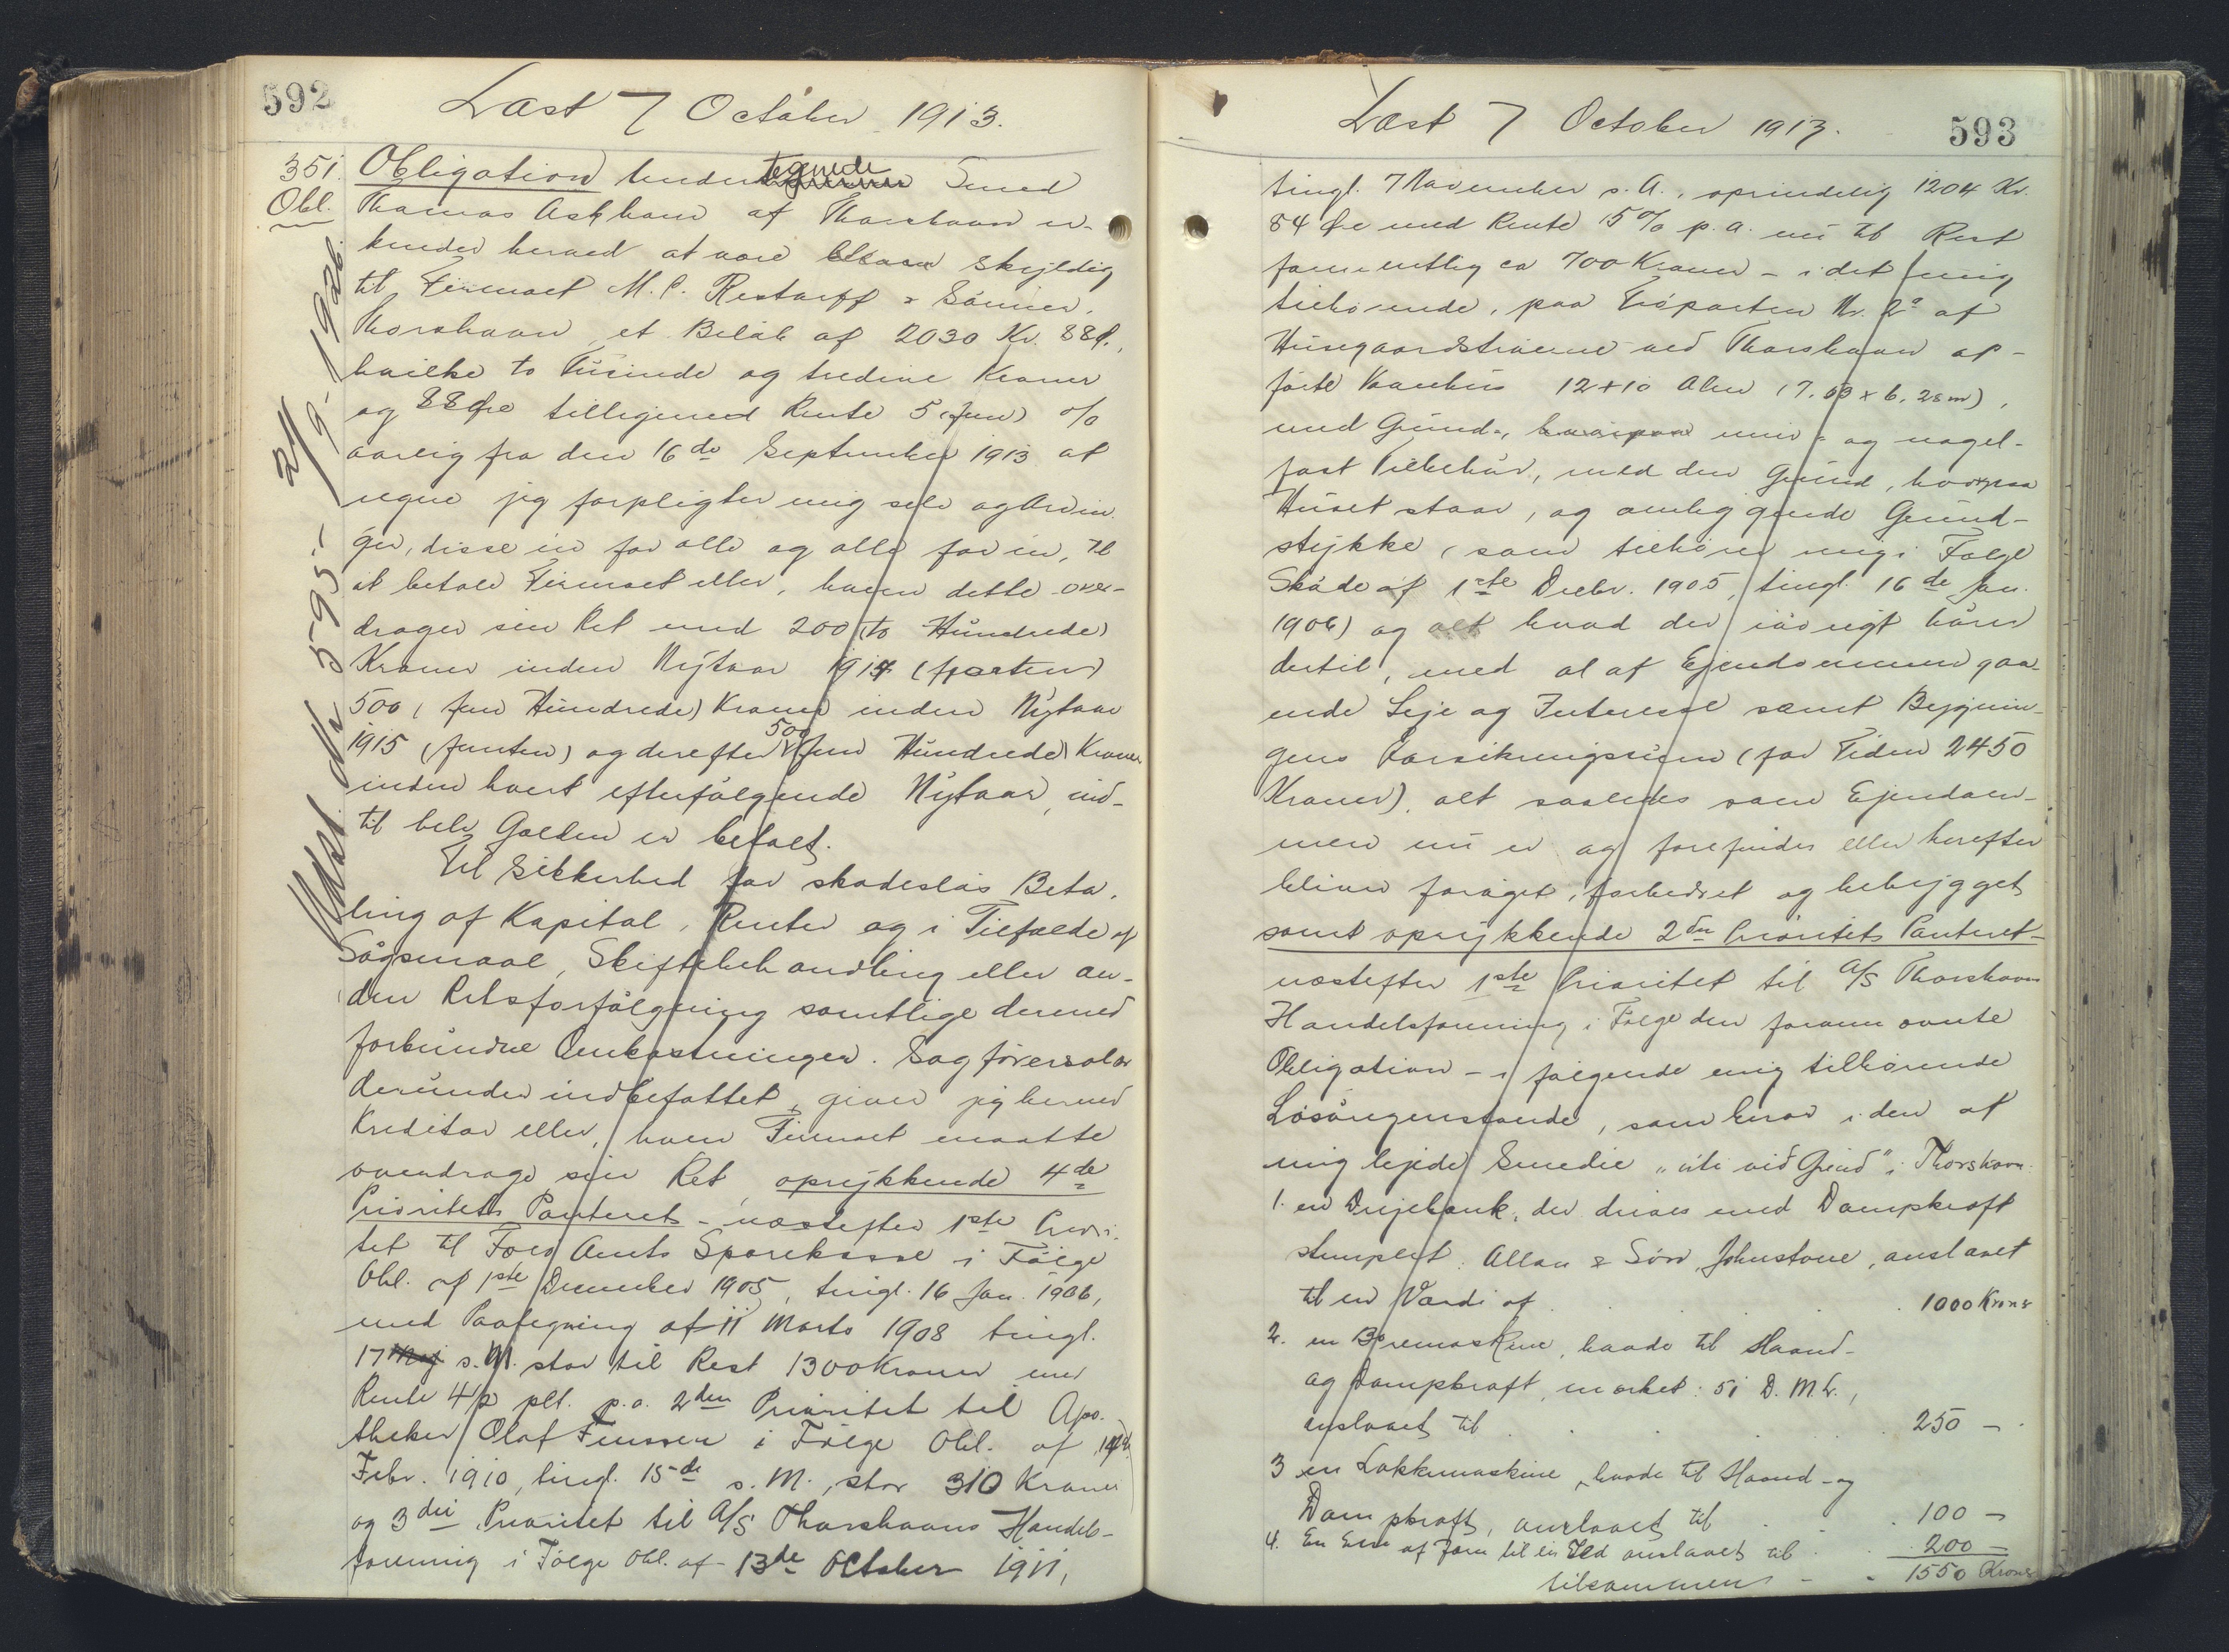 592
Læst 7 October 1913.
351. Obligation Undertegnede Smed
Obl. Thomas Askham af Thorshavn er-
kender herved at være skyldig
til Firmaet M. C. Restorff & Sönner,
Thorshavn et Belöb af 2030 Kr. 88 Ø.,
hvilke to Tusinde og tredive Kroner
og 88 Øre tilligemed Rente 5 (fem) %
aarlig fra den 16de September 1913 at
regne jeg forpligter mig selv og Arvin-
ger, disse en for alle og alle for en, til
at betale Firmaet eller, hvem dette over-
drager sin Ret med 200 (to Hundrede)
Kroner inden Nytaar 1914 (fjorten)
500 (fem Hundrede) Kroner inden Nytaar
1915 (femten) og derefter 500 (fem Hundrede) Kroner
inden hvert efterfölgende Nytaar, ind-
til hele Gælden er betalt.
Til Sikkerhed for skadeslös Beta-
ling af Kapital, Renter og i Tilfælde af
Sögsmaal, Skiftebehandling eller an-
den Retsforfölgning samtlige dermed
forbundne Omkostninger. Sagförersalær
derunder indbefattet, giver jeg herved
Kreditor eller, hvem Firmaet maatte
overdrage sin Ret, oprykkende 4de
Prioritets Panteret - næstefter 1ste Priori-
tet til Færö Amts Sparekasse i Fölge
Obl. af 1ste December 1905, tingl. 16 Jan. 1906,
med Paategning af 11 Marts 1908 tingl.
17 Maj s. M. stor til Rest 1300 Kroner med
Rente 4½ pCt. p.a. 2den Prioritet til Apo-
theker Olaf Finssen i Fölge Obl. af 14de
Febr. 1910, tingl. 15de s. M., stor 310 Kroner
og 3die Prioritet til A/S Thorshavns Handels-
forening i Fölge Obl. af 13de October 1911,
Udslet 595 - 2/9-1926.
593
Læst 7 October 1913.
tingl. 7 November s. A., oprindelig 1204 Kr.
84 Øre med Rente 5 % p. a. nu til Rest
formentlig ca 700 Kroner - i det mig
tilhörende, paa Tröparten Nr. 2a af
Husegaardströerne ved Thorshavn op-
förte Vaanhus 12 x 10 Alen (7.53 x 6.28 m),
med Grund-, mur- og nagel-
fast Tilbehör, med den Grund, hvorpaa
Huset staar, og omliggende Grund-
stykke (som tilhörer mig i Fölge
Sköde af 1ste Decbr. 1905, tingl. 16de Jan.
1906) og alt hvad der iövrigt hörer
dertil, med al af Ejendommen gaa-
ende Leje og Interesse samt Bygnin-
gens Forsikringssum (for Tiden 2450
Kroner), alt saaledes som Ejendom-
men nu er og forefindes eller herefter
bliver foröget, forbedret og bebygget
samt oprykkende 2den Prioritets Panteret -
næstefter 1ste Prioritet til A/S Thorshavns
Handelsforening i Fölge den foran nævnte
Obligation - i fölgende mig tilhörende
Lösöregenstande, som beror i den af
mig lejede Smedie "úti við Grind" i Thorshavn:
1. en Drejebænk, der drives med Dampkraft
stemplet: Allan & Sön, Johnstone, anslaaet
til en Værdi af . . . 1000 Kroner
2. en Boremaskine, baade til Haand-
og Dampkraft, mærket: 51 D. M. L.,
anslaaet til . . . 250 —
3 en Lokkemaskine, baade til Haand- og
Dampkraft, anslaaet til . . . 100 —
4. En Esse af Jern til en Ild anslaaet til . . 200 —
tilsammen - - 1550 Kroner